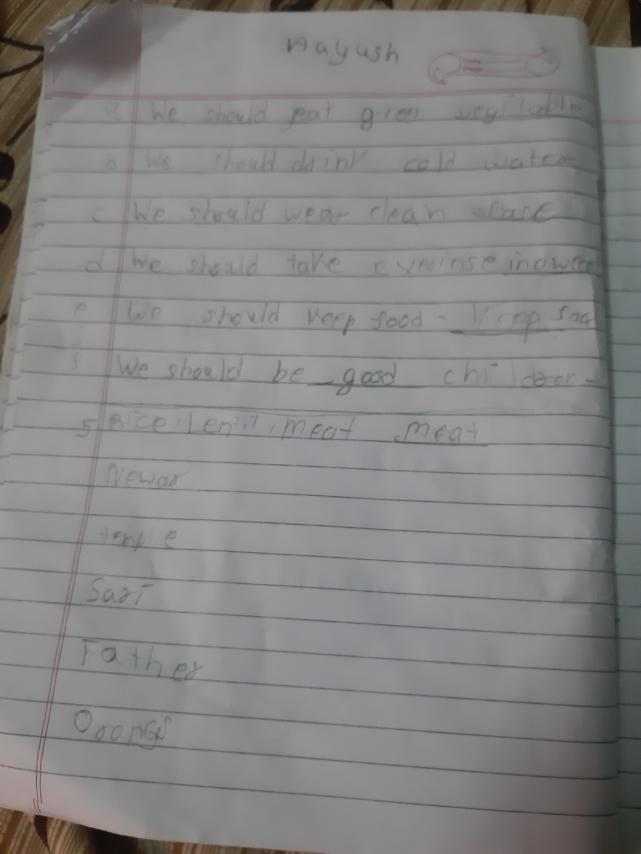 Aayush
a we should eat green vegitable
b we should drink cold water
c We should wear clean
d We should take in
e We should keep food - keep
f We should be good children-
5 Rice, lentil, meat meat
Newar
temple
Sari
Father